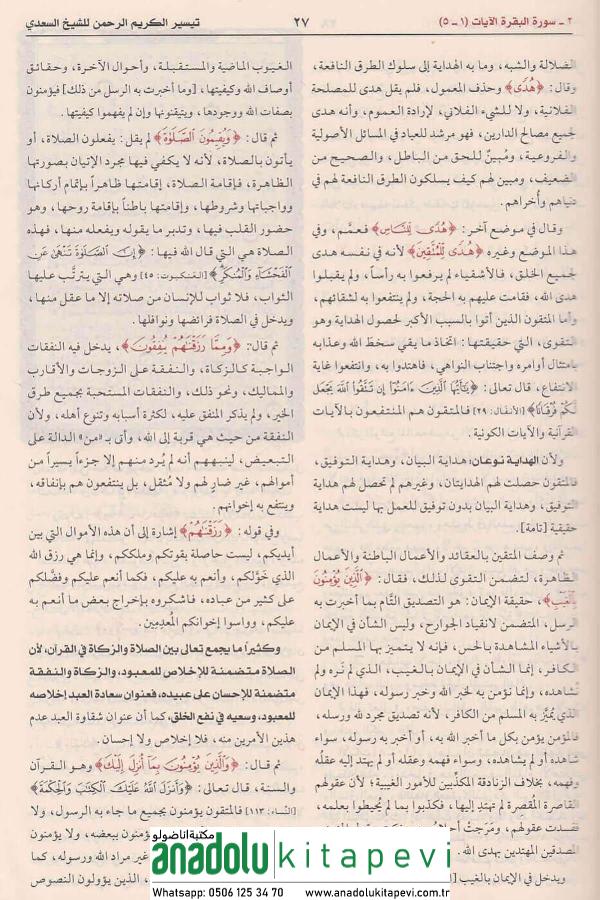 ٢ - سورة البقرة الآيات (١-٥)
٢٧
تيسير الكريم الرحمن للشيخ السعدي
الضلالة والشبه، وما به الهداية إلى سلوك الطرق النافعة،
وقال: ﴿هُدًى﴾ وحذف المعمول، فلم يقل هدى للمصلحة
الفلانية، ولا للشيء الفلاني، لإرادة العموم، وأنه هدى
لجميع مصالح الدارين، فهو مرشد للعباد في المسائل الأصولية
والفروعية، ومُبينٌ للحق من الباطل، والصحيح من
الضعيف، ومبين لهم كيف يسلكون الطرق النافعة لهم في
دنياهم وأُخراهم.
وقال في موضع آخر: ﴿هُدًى لِلنَّاسِ﴾ فعمَّم، وفي
هذا الموضع وغيره ﴿هُدًى لِلْمُتَّقِينَ﴾ لأنه في نفسه هدى
لجميع الخلق، فالأشقياء لم يرفعوا به رأساً، ولم يقبلوا
هدى الله، فقامت عليهم به الحجة، ولم ينتفعوا به لشقائهم،
وأما المتقون الذين أتوا بالسبب الأكبر لحصول الهداية وهو
التقوى، التي حقيقتها: اتخاذ ما يقي سخط الله وعذابه
بامتثال أوامره واجتناب النواهي، فاهتدوا به، وانتفعوا غاية
الانتفاع، قال تعالى: ﴿يَا أَيُّهَا الَّذِينَ آمَنُوا إِن تَتَّقُوا اللَّهَ يَجْعَل
لَّكُمْ فُرْقَانًا﴾ [الأنفال: ٢٩] فالمتقون هم المنتفعون بالآيات
القرآنية والآيات الكونية.
ولأن الهداية نوعان: هداية البيان، وهداية التوفيق،
فالمتقون حصلت لهم الهدايتان، وغيرهم لم تحصل لهم هداية
التوفيق، وهداية البيان بدون توفيق للعمل بها ليست هداية
حقيقية [تامة].
ثم وصف المتقين بالعقائد والأعمال الباطنة والأعمال
الظاهرة، لتضمن التقوى لذلك، فقال: ﴿الَّذِينَ يُؤْمِنُونَ
بِالْغَيْبِ﴾، حقيقة الإيمان: هو التصديق التَّام بما أخبرت به
الرسل، المتضمن لانقياد الجوارح، وليس الشأن في الإيمان
بالأشياء المشاهدة بالحس، فإنه لا يتميز بها المسلم من
الكافر، إنما الشأن في الإيمان بالغيب، الذي لم نَره ولم
نشاهده، وإنما نؤمن به لخبر الله وخبر رسوله، فهذا الإيمان
الذي يُميَّز به المسلم من الكافر، لأنه تصديق مجرد لله ورسله،
فالمؤمن يؤمن بكل ما أخبر الله به، أو أخبر به رسوله، سواء
شاهده أو لم يشاهده، وسواء فهمه وعقله أو لم يهتد إليه عقلُه
وفهمه، بخلاف الزنادقة المكذِّبين للأمور الغيبية؛ لأن عقولهم
القاصرة المقصرة لم تهتدِ إليها، فكذبوا بما لم يُحيطوا بعلمه،
ففسدت عقولهم، ومَرَجتْ
المصدقين المهتدين بهدى الله
ويدخل في الإيمان بالغيب
الغيوب الماضية والمستقبلة، وأحوال الآخرة، وحقائق
أوصاف الله وكيفيتها، [وما أخبرت به الرسل من ذلك] فيؤمنون
بصفات الله ووجودها، ويتيقنونها وإن لم يفهموا كيفيتها.
ثم قال: ﴿وَيُقِيمُونَ الصَّلَوٰةَ﴾ لم يقل: يفعلون الصلاة، أو
يأتون بالصلاة، لأنه لا يكفي فيها مجرد الإتيان بصورتها
الظاهرة، فإقامة الصلاة، إقامتها ظاهراً بإتمام أركانها
وواجباتها وشروطها، وإقامتها باطناً بإقامة روحها، وهو
حضور القلب فيها، وتدبر ما يقوله ويفعله منها، فهذه
الصلاة هي التي قال الله فيها: ﴿إِنَّ الصَّلَوٰةَ تَنْهَىٰ عَنِ
الْفَحْشَاءِ وَالْمُنكَرِ﴾ [العنكبوت: ٤٥] وهي التي يترتَّب عليها
الثواب، فلا ثواب للإنسان من صلاته إلا ما عقل منها،
ويدخل في الصلاة فرائضها ونوافلها.
ثم قال: ﴿وَمِمَّا رَزَقْنَٰهُمْ يُنفِقُونَ﴾، يدخل فيه النفقات
الواجبة كالزكاة، والنفقة على الزوجات والأقارب
والمماليك، ونحو ذلك، والنفقات المستحبة بجميع طرق
الخير، ولم يذكر المنفق عليه، لكثرة أسبابه وتنوع أهله، ولأن
النفقة من حيث هي قربة إلى الله، وأتى بـ «من» الدالة على
التبعيض، لينبههم أنه لم يُرِد منهم إلا جزءاً يسيراً من
أموالهم، غير ضارٍ لهم ولا مُثقل، بل ينتفعون هم بإنفاقه،
وينتفع به إخوانهم.
وفي قوله: ﴿رَزَقْنَٰهُمْ﴾ إشارة إلى أن هذه الأموال التي بين
أيديكم، ليست حاصلة بقوتكم وملككم، وإنما هي رزق الله
الذي خوَّلكم، وأنعم به عليكم، فكما أنعم عليكم وفضَّلكم
على كثير من عباده، فاشكروه بإخراج بعض ما أنعم به
عليكم، وواسوا إخوانكم المُعدِمين.
وكثيراً ما يجمع تعالى بين الصلاة والزكاة في القرآن، لأن
الصلاة متضمنة للإخلاص للمعبود، والزكاة والنفقة
متضمنة للإحسان على عبيده، فعنوان سعادة العبد إخلاصه
للمعبود، وسعيه في نفع الخلق، كما أن عنوان شقاوة العبد عدم
هذين الأمرين منه، فلا إخلاص ولا إحسان.
ثم قال: ﴿وَالَّذِينَ يُؤْمِنُونَ بِمَا أُنزِلَ إِلَيْكَ﴾ وهو القرآن
والسنة، قال تعالى: ﴿وَأَنزَلَ اللَّهُ عَلَيْكَ الْكِتَٰبَ وَالْحِكْمَةَ﴾
[النساء: ١١٣] فالمتقون يؤمنون بجميع ما جاء به الرسول، ولا
يؤمنون ببعضه، ولا يؤمنون
غير مراد الله ورسوله، كما
الذين يؤولون النصوص
مكتبة اناضولو
anadolu kitapevi
Whatsapp: 0506 125 34 70 www.anadolukitapevi.com.tr